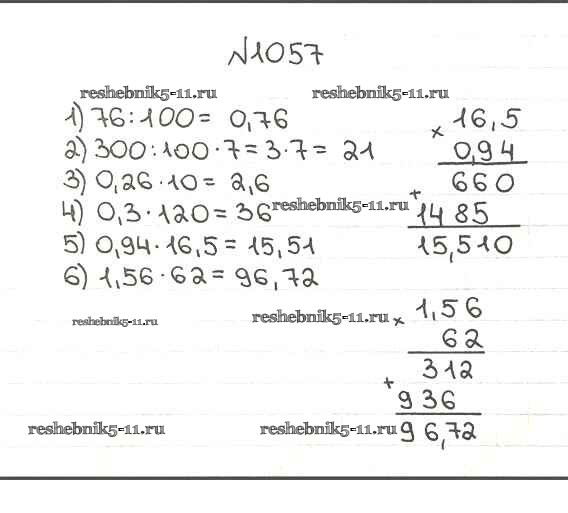 №1057
reshebnik5-11.ru reshebnik5-11.ru
1) 76:100= 0,76
2) 300:100·7=3·7= 21
3) 0,26·10= 2,6
4) 0,3·120=36
reshebnik5-11.ru
5) 0,94·16,5=15,51
6) 1,56·62=96,72
× 16,5
0,94
+ 660
1485
15,510
reshebnik5-11.ru reshebnik5-11.ru
× 1,56
62
+ 312
936
96,72
reshebnik5-11.ru reshebnik5-11.ru